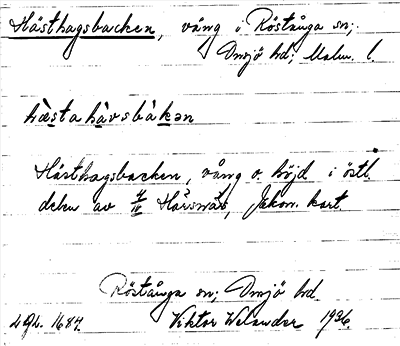 Hästhagsbacken, vång i Röstånga sn;
Onsjö hd; Malm. l.
hæ̀stahàvsbàkən
Hästhagsbacken, vång o. höjd i östl.
delen av 4/IV Hårsnäs, Jakow. kart.
Röstånga sn; Onsjö hd.
LGL. 1684. Viktor Welander 1936.